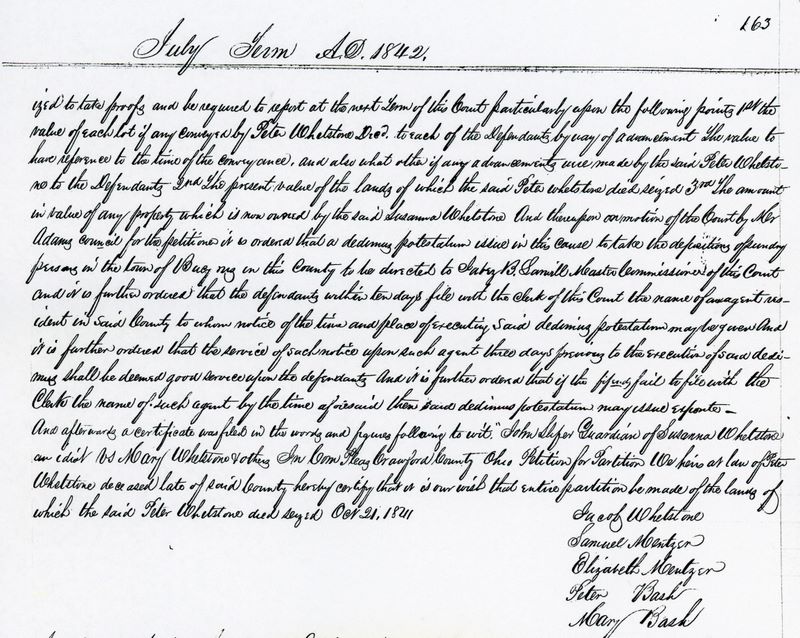 163
July Term A.D. 1842.
ized to take proofs and be required to report at the next term of this Court particularly upon the following points 1st the
value of each lot if any conveyed by Peter Whetstone Decd. to each of the Defendants by way of advancement The value to
have reference to the time of the conveyance. and also what other if any advancements were made by the said Peter Whetsto-
ne to the Defendants 2nd The present value of the lands of which the said Peter Whetstone died seized 3rd The amount
in value of any property which is now owned by the said Susanna Whetstone And thereupon on motion of the Court by Mr
Adams council for the petitioner it is ordered that a dedimus potestatum issue in this cause to take the depositions of sundry
persons in the town of Bucyrus in this County to be directed to B. Master Commissioner of this Court
and it is further ordered that the defendants within ten days file with the Clerk of this Court the name of an agent res-
ident in said County to whom notice of the time and place of executing said dedimus potestatum may be given And
it is further ordered that the service of such notice upon such agent three days previous to the execution of said dedi-
mus shall be deemed good service upon the defendants And it is further ordered that if the fail to file with the
Clerk the name of such agent by the time aforesaid then said dedimus potestatum may issue exparte –
And afterwards a certificate was filed in the words and figures following to wit, "John Guardian of Susanna Whetstone
an idiot vs Mary Whetstone & others In Com Pleas Crawford County Ohio Petition for Partition We heirs at law of Peter
Whetstone deceased late of said County hereby certify that it is our wish that entire partition be made of the lands of
which the said Peter Whetstone died seized Oct 21, 1841
Jacob Whetstone
Samuel Mentzer
Elizabeth Mentzer
Peter Bash
Mary Bash